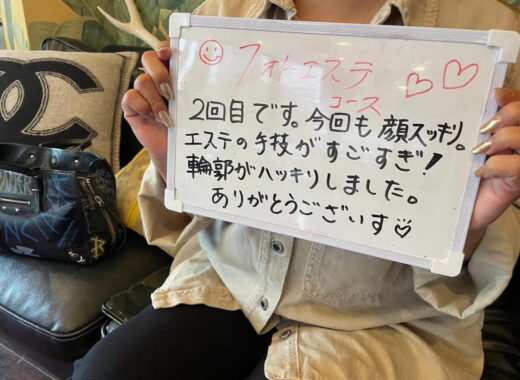 フォトエステ
コース
2回目です。今回も顔スッキリ。
エステの手技がすごすぎ!
輪郭がハッキリしました。
ありがとうございす♡